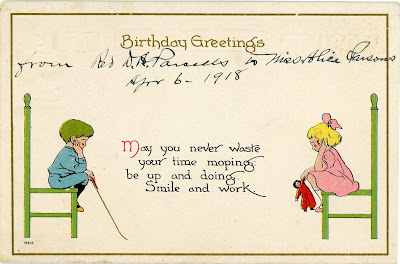 Birthday Greetings
from D. H. Parcells to Miss Alice Parsons
Apr 6 - 1918
May you never waste
your time moping,
be up and doing.
Smile and work.